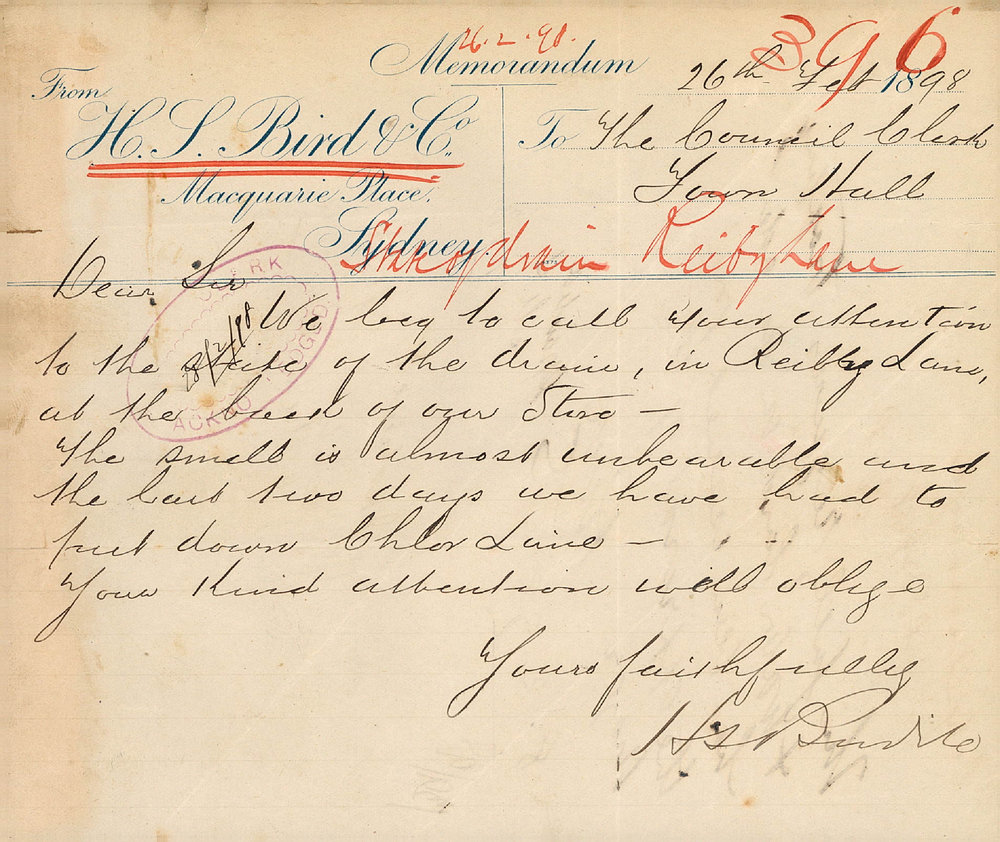 26.2.98.
396
Memorandum
26th Feb 1898
From
H. S. Bird & Co.
To The Council Clerk
Macquarie Place,
Town Hall
Sydney.
State of drain Reiby Lane
Dear Sir
CLERK
We beg to call your attention
to the state of the drain, in Reiby Lane,
28/2/98
at the back of our Store –
ACKNOWLEDGED
The smell is almost unbearable and
the last two days we have had to
put down Chlor Lime –
Your Kind attention will oblige
Yours faithfully
H S Bird & Co